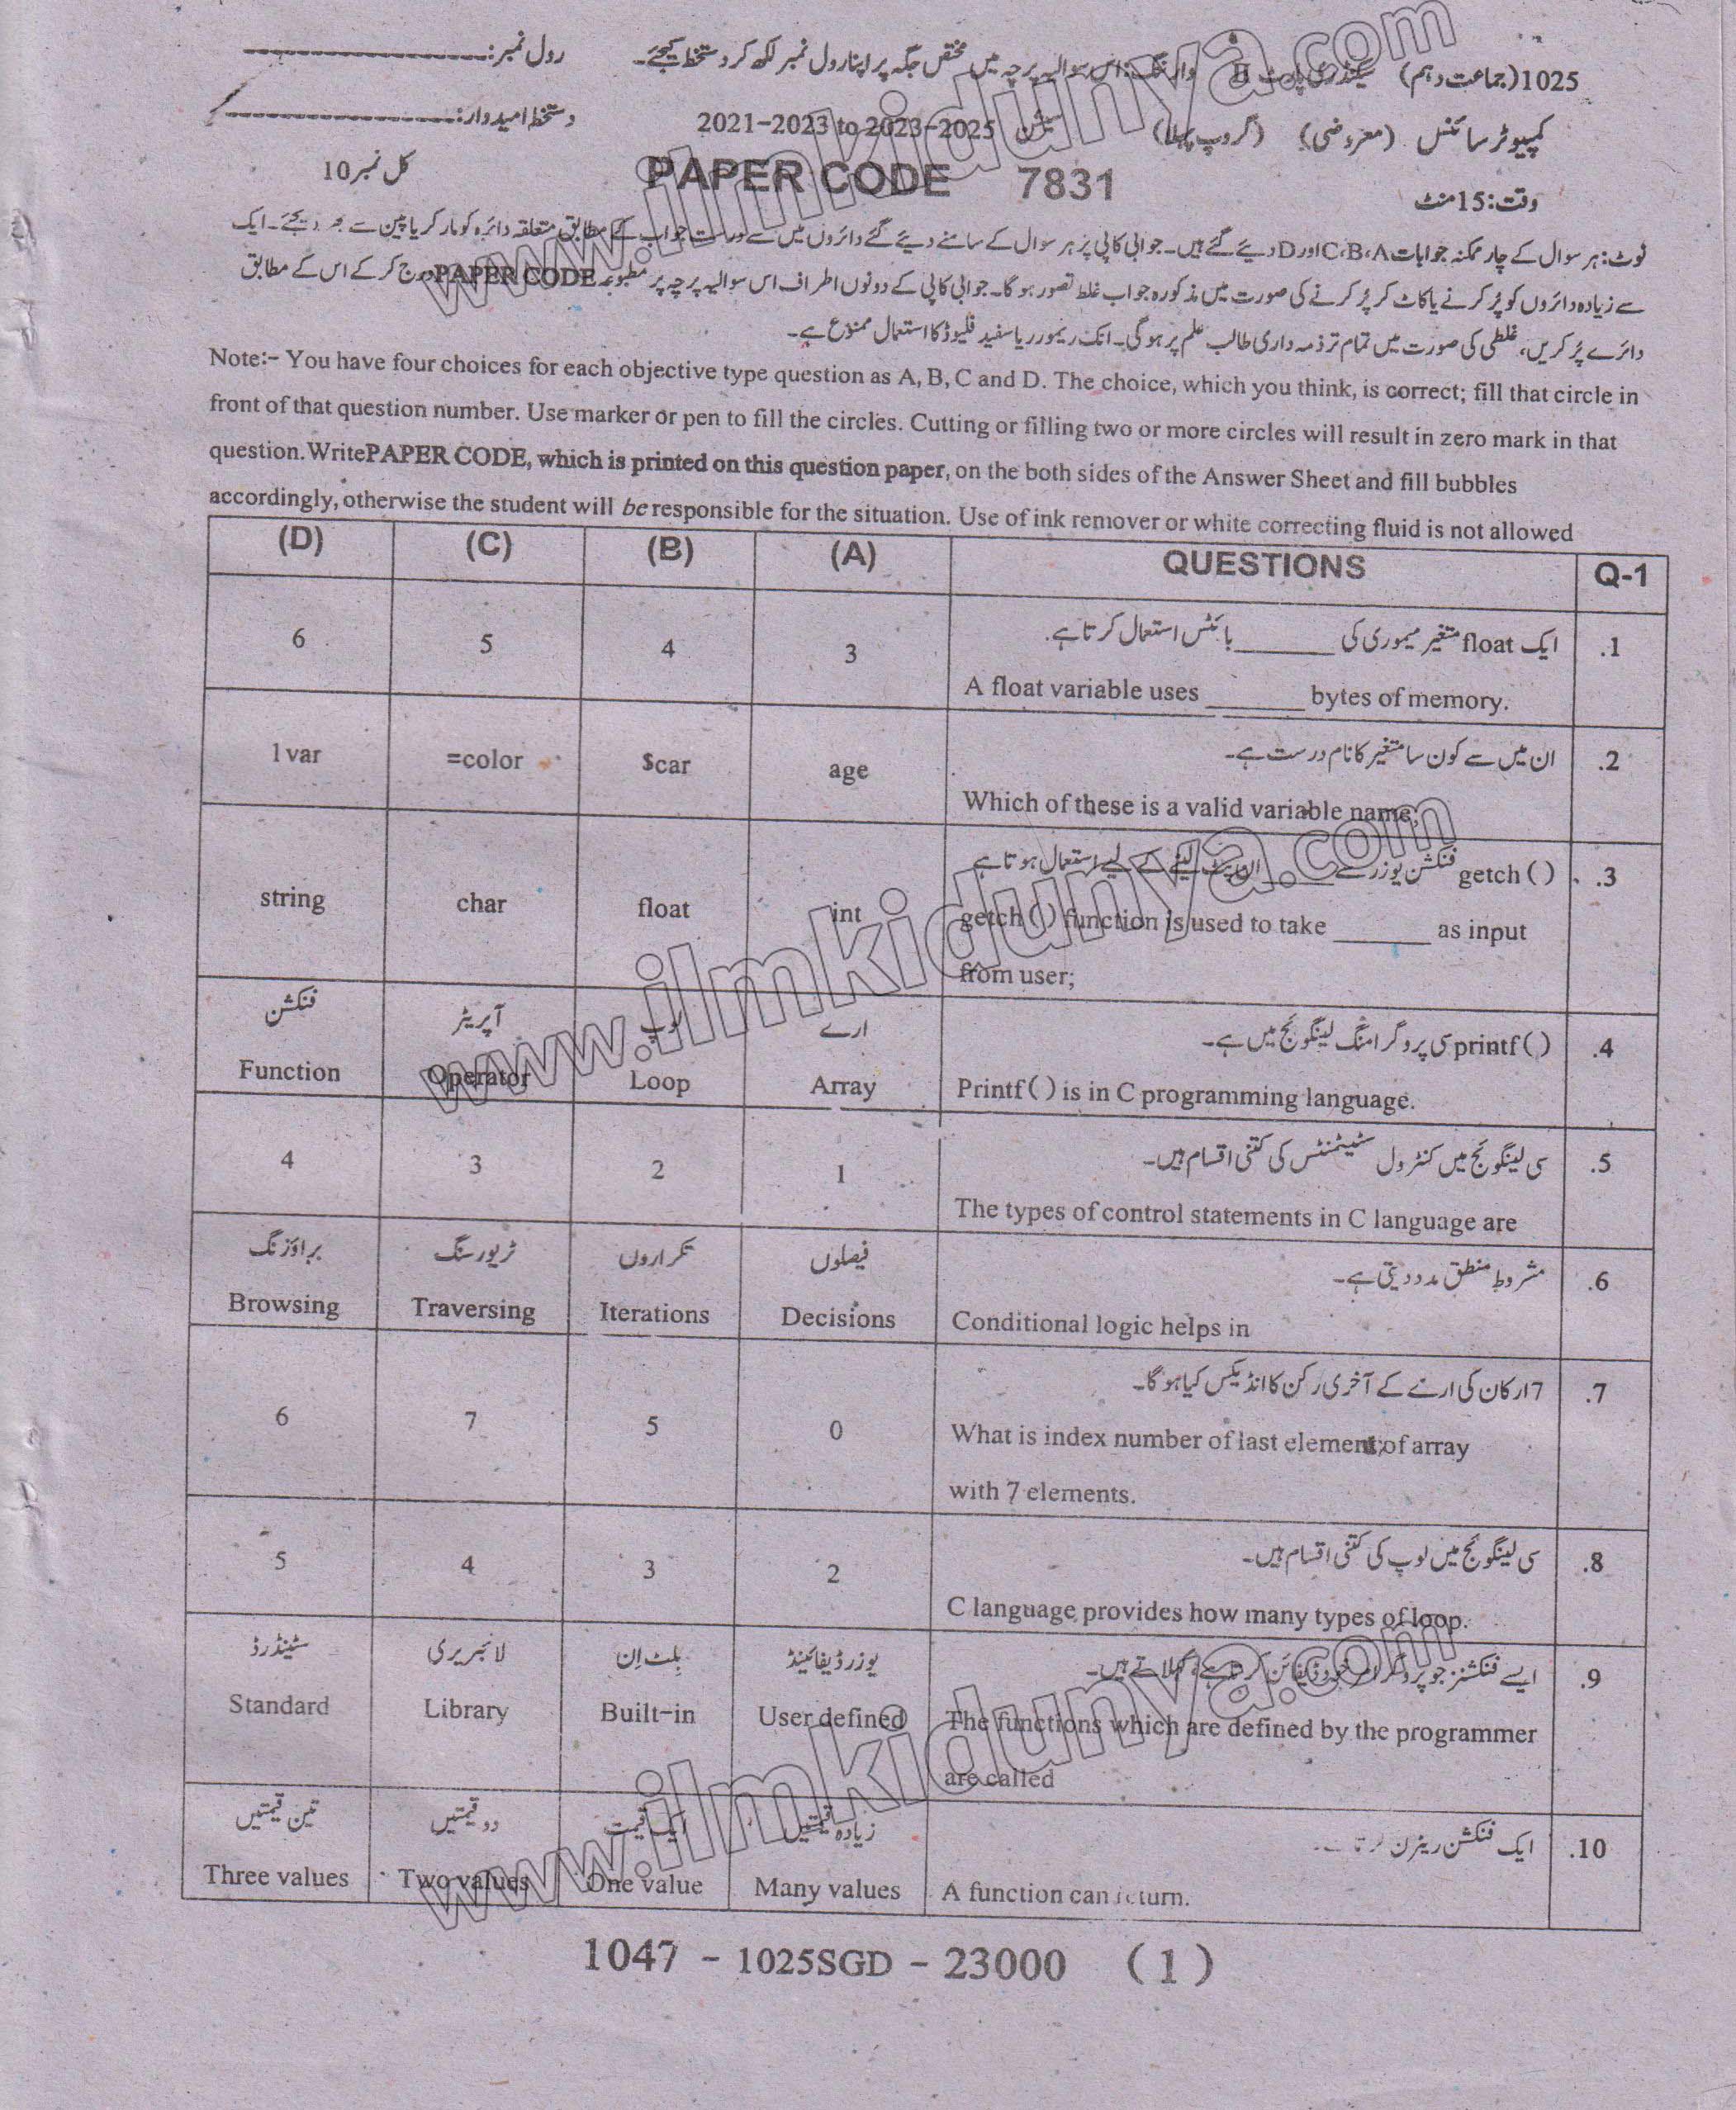 1025(جماعت دہم) سیکنڈری پارٹ II وارننگ: اس سوالیہ پرچہ میں مختص جگہ پر اپنا رول نمبر لکھ کر دستخط کیجئے۔ رول نمبر:
کمپیوٹر سائنس (معروضی) (گروپ پہلا) سیشن 2021-2023 to 2023-2025 دستخط امیدوار:
وقت: 15 منٹ PAPER CODE 7831 کل نمبر 10
نوٹ: ہر سوال کے چار ممکنہ جوابات A،B،C اور D دیئے گئے ہیں۔ جوابی کاپی پر ہر سوال کے سامنے دیئے گئے دائروں میں سے درست جواب کے مطابق متعلقہ دائرہ کو مارکر یا پین سے بھر دیجئے۔ ایک
سے زیادہ دائروں کو پُر کرنے یا کاٹ کر پُر کرنے کی صورت میں مذکورہ جواب غلط تصور ہو گا۔ جوابی کاپی کے دونوں اطراف اس سوالیہ پرچہ پر مطبوعہ PAPER CODE درج کر کے اس کے مطابق
دائرے پُر کریں، غلطی کی صورت میں تمام تر ذمہ داری طالب علم پر ہوگی۔ انک ریمور یا سفید فلیوڈ کا استعمال ممنوع ہے۔
Note:- You have four choices for each objective type question as A, B, C and D. The choice, which you think, is correct; fill that circle in
front of that question number. Use marker or pen to fill the circles. Cutting or filling two or more circles will result in zero mark in that
question.WritePAPER CODE, which is printed on this question paper, on the both sides of the Answer Sheet and fill bubbles
accordingly, otherwise the student will be responsible for the situation. Use of ink remover or white correcting fluid is not allowed
(D) (C) (B) (A) QUESTIONS Q-1
ایک float متغیر میموری کی ______ بائٹس استعمال کرتا ہے. .1
6 5 4 3 A float variable uses ______ bytes of memory.
ان میں سے کون سا متغیر کا نام درست ہے۔ .2
1var =color $car age Which of these is a valid variable name;
getch ( ) فنکشن یوزر سے ______ ان پٹ لینے کے لیے استعمال ہوتا ہے .3
string char float int getch ( ) function is used to take ______ as input
from user;
فنکشن آپریٹر لوپ ارے printf ( ) سی پروگرامنگ لینگوئج میں ہے۔ .4
Function Operator Loop Array Printf ( ) is in C programming language.
سی لینگوئج میں کنٹرول سٹیٹمنٹس کی کتنی اقسام ہیں۔ .5
4 3 2 1 The types of control statements in C language are
براؤزنگ ٹریورسنگ تکراروں فیصلوں مشروط منطق مدد دیتی ہے۔ .6
Browsing Traversing Iterations Decisions Conditional logic helps in
7 ارکان کی ارے کے آخری رکن کا انڈیکس کیا ہو گا۔ .7
6 7 5 0 What is index number of last element of array
with 7 elements.
سی لینگوئج میں لوپ کی کتنی اقسام ہیں۔ .8
5 4 3 2 C language provides how many types of loop.
سٹینڈرڈ لائبریری بِلٹ اِن یوزر ڈیفائینڈ ایسے فنکشنز جو پروگرامر خود ڈیفائن کرتا ہے، کہلاتے ہیں۔ .9
Standard Library Built-in User defined The functions which are defined by the programmer
are called
تین قیمتیں دو قیمتیں ایک قیمت زیادہ قیمتیں ایک فنکشن ریٹرن کرتا .10
Three values Two values One value Many values A function can return.
1047 - 1025SGD - 23000 (1)
www.ilmkidunya.com
www.ilmkidunya.com
www.ilmkidunya.com